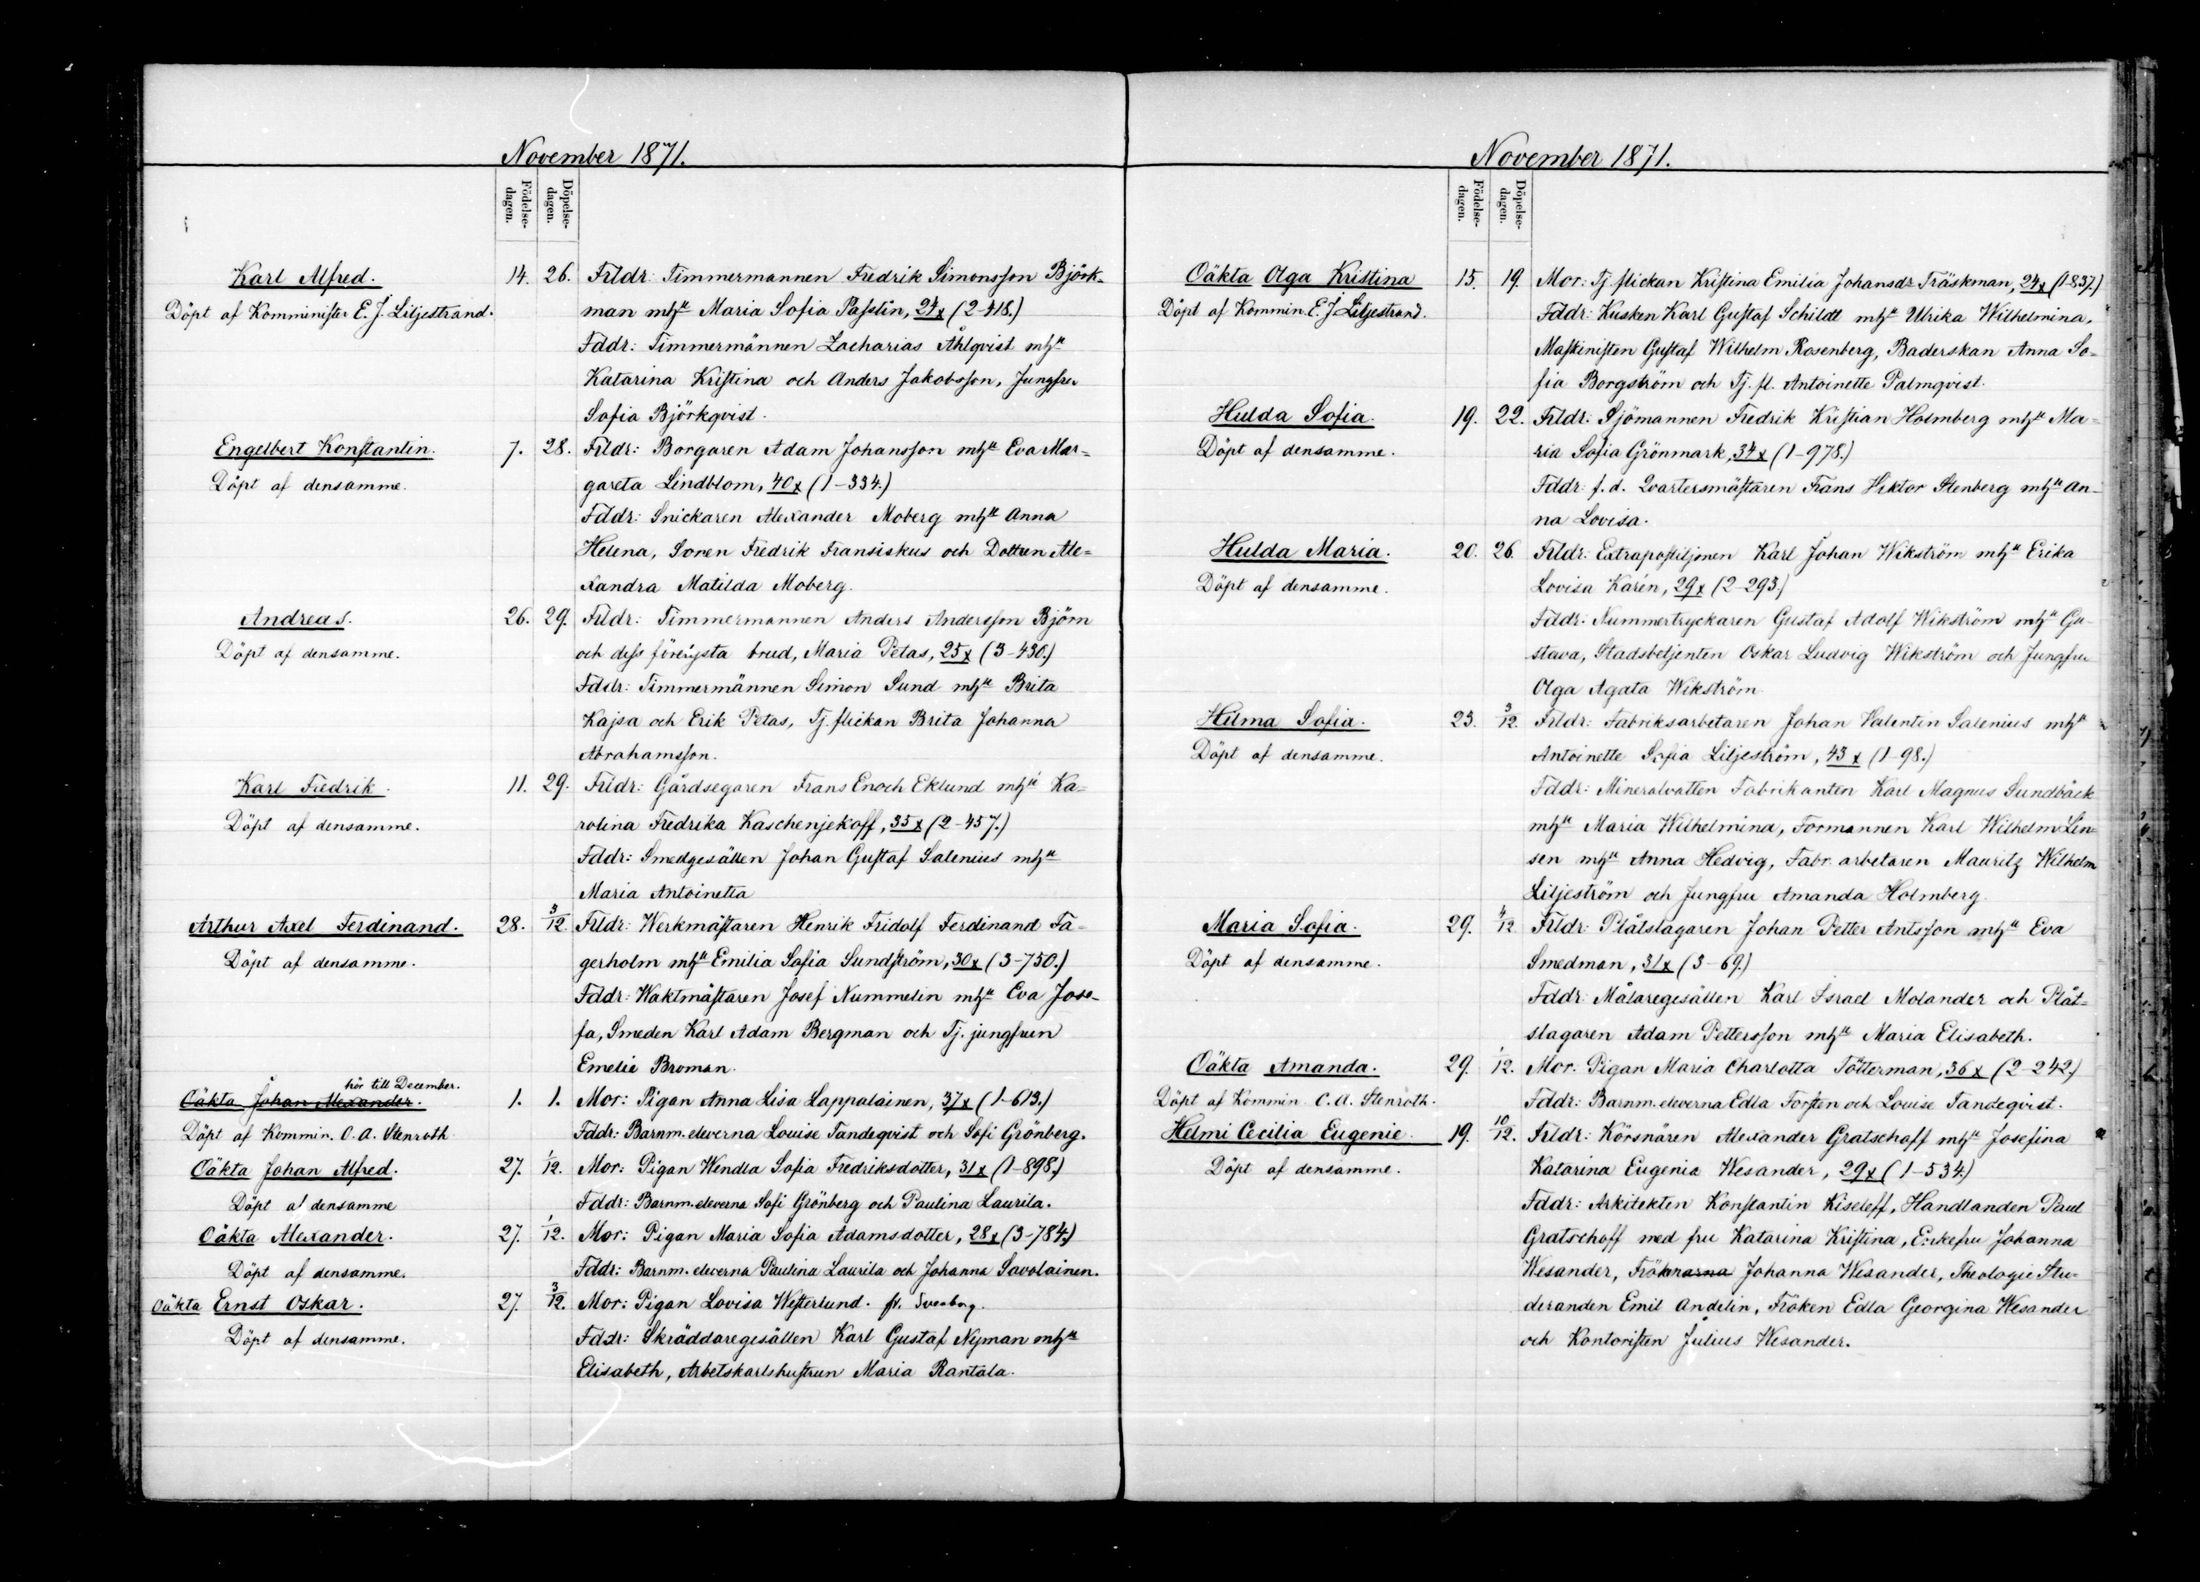 November 1871.
Födelse-dagen.
Döpelse-dagen.
Karl Alfred. 14. 26. Frldr: Timmermannen Fredrik Simonsson Björk-
Döpt af Komminister E. J. Liljestrand. man mhu Maria Sofia Passlin, 24x (2-418.)
Fddr: Timmermännen Zacharias Åhlqvist mhu
Katarina Kristina och Anders Jakobsson, Jungfru
Sofia Björkqvist.
Engelbert Konstantin. 7. 28. Frldr: Borgaren Adam Johansson mhu Eva Mar-
Döpt af densamme. gareta Lindblom, 40x (1-334.)
Fddr: Snickaren Alexander Moberg mhu Anna
Helena, Sonen Fredrik Fransiskus och Dottren Ale-
xandra Matilda Moberg.
Andreas. 26. 29. Frldr: Timmermannen Anders Andersson Björn
Döpt af densamme. och dess förelysta brud, Maria Petas, 25x (3-430.)
Fddr: Timmermännen Simon Sund mhu Brita
Kajsa och Erik Petas, Tj. flickan Brita Johanna
Abrahamsson.
Karl Fredrik. 11. 29. Frldr: Gårdsegaren Frans Enoch Eklund mhu Ka-
Döpt af densamme. rolina Fredrika Kaschenjekoff, 35x (2-457.)
Fddr: Smedgesällen Johan Gustaf Salenius mhu
Maria Antoinetta
Arthur Axel Ferdinand. 28. 3/12 Frldr: Werkmästaren Henrik Fridolf Ferdinand Fa-
Döpt af densamme. gerholm mhu Emilia Sofia Sundström, 30x (3-750.)
Fddr: Waktmästaren Josef Nummelin mhu Eva Jose-
fa, Smeden Karl Adam Bergman och Tj. jungfrun
Emelie Broman.
hör till December.
Oäkta Johan Alexander. 1. 1. Mor: Pigan Anna Lisa Lappalainen, 37x (1-613.)
Döpt af Kommin. C. A. Stenroth Fddr: Barnm. eleverna Louise Tandeqvist och Sofi Grönberg.
Oäkta Johan Alfred. 27. 1/12. Mor: Pigan Wendla Sofia Fredriksdotter, 31x (1-898.)
Döpt af densamme Fddr: Barnm. eleverna Sofi Grönberg och Paulina Laurila.
Oäkta Alexander. 27. 1/12. Mor: Pigan Maria Sofia Adamsdotter, 28x (3-784.)
Döpt af densamme. Fddr: Barnm. eleverna Paulina Laurila och Johanna Savolainen.
Oäkta Ernst Oskar. 27. 3/12. Mor: Pigan Lovisa Westerlund. fr. Sveaborg.
Döpt af densamme. Fddr: Skräddaregesällen Karl Gustaf Nyman mhu
Elisabeth, Arbetskarlshustrun Maria Rantala.
November 1871.
Födelse-dagen.
Döpelse-dagen.
Oäkta Olga Kristina 15. 19. Mor: Tj. flickan Kristina Emilia Johansdr Träskman, 24x (1-837.)
Döpt af Kommin. E. J. Liljestrand. Fddr: Kusken Karl Gustaf Schildt mhu Ulrika Wilhelmina,
Maskinisten Gustaf Wilhelm Rosenberg, Baderskan Anna So-
fia Borgström och Tj. fl. Antoinette Palmqvist.
Hulda Sofia. 19. 22. Frldr: Sjömannen Fredrik Kristian Holmberg mhu Ma-
Döpt af densamme. ria Sofia Grönmark, 34x (1-978.)
Fddr: f. d. Qvartersmästaren Frans Viktor Stenberg mhu An-
na Lovisa.
Hulda Maria. 20. 26. Frldr: Extrapostiljonen Karl Johan Wikström mhu Erika
Döpt af densamme. Lovisa Karén, 29x (2-293.)
Fddr: Nummertryckaren Gustaf Adolf Wikström mhu Gu-
stava, Stadsbetjenten Oskar Ludvig Wikström och Jungfru
Olga Agata Wikström.
Hilma Sofia. 23. 3/12. Frldr: Fabriksarbetaren Johan Valentin Salenius mhu
Döpt af densamme. Antoinette Sofia Liljeström, 43x (1-98.)
Fddr: Mineralvatten Fabrikanten Karl Magnus Sundbäck
mhu Maria Wilhelmina, Formannen Karl Wilhelm Lin-
sen mhu Anna Hedvig, Fabr. arbetaren Mauritz Wilhelm
Liljeström och Jungfru Amanda Holmberg.
Maria Sofia. 29. 4/12 Frldr: Plåtslagaren Johan Petter Antsson mhu Eva
Döpt af densamme. Smedman, 31x (3-69.)
Fddr: Målaregesällen Karl Israel Molander och Plåt-
slagaren Adam Pettersson mhu Maria Elisabeth.
Oäkta Amanda. 29. 1/12. Mor: Pigan Maria Charlotta Tötterman, 36x (2-242.)
Döpt af Kommin. C. A. Stenroth. Fddr: Barnm. eleverna Edla Forsten och Louise Tandeqvist.
Helmi Cecilia Eugenie. 19. 10/12. Frldr: Körsnären Alexander Gratschoff mhu Josefina
Döpt af densamme. Katarina Eugenia Wesander, 29x (1-534.)
Fddr: Arkitekten Konstantin Kiseleff, Handlanden Paul
Gratschoff med fru Katarina Kristina, Enkefru Johanna
Wesander, Fröknarna Johanna Wesander, Theologie Stu-
deranden Emil Andelin, Fröken Edla Georgina Wesander
och Kontoristen Julius Wesander.